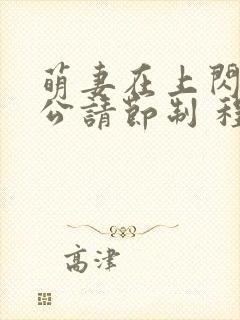 萌妻在上閃
公請節制 程
高津